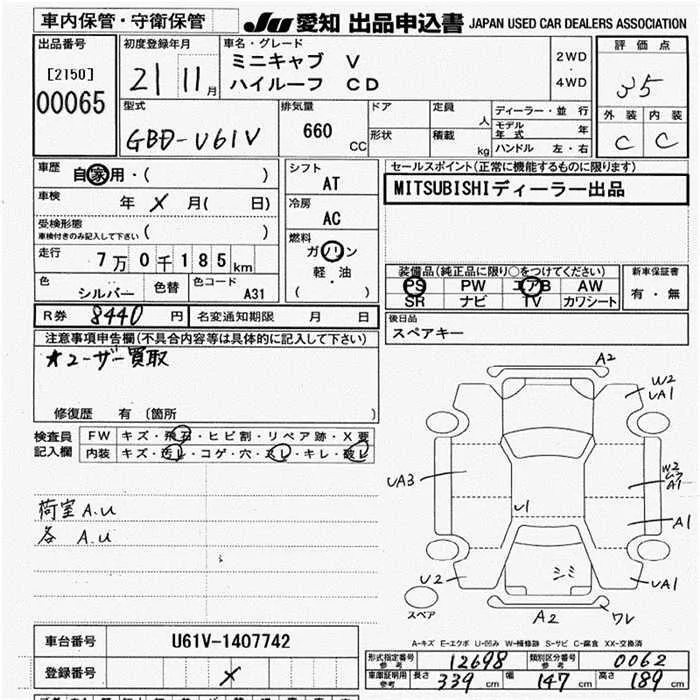 車内保管・守衛保管
JU 愛知 出品申込書 JAPAN USED CAR DEALERS ASSOCIATION
出品番号
[2150]
00065
初度登録年月
21 11月
車名・グレード
ミニキャブ V
ハイルーフ CD
2WD
・
4WD
評価点
35
外装 内装
C C
型式
GBD-U61V
排気量
660
CC
ドア
形状
定員
人
積載
kg
ディーラー・並行
モデル年式 年
ハンドル 左・右
車歴
自家用・( )
車検 年 X 月( 日)
受検形態
車検付きのみ記入して下さい ( )
走行 7万0千185km
色 シルバー 色替 色コード A31
シフト
AT
冷房
AC
燃料
ガソリン
軽・油
( )
セールスポイント(正常に機能するものに限ります)
MITSUBISHIディーラー出品
装備品(純正品に限り○をつけてください)
PS PW エアB AW
SR ナビ TV カワシート
新車保証書
有・無
R券 8440 円 名変通知期限 月 日
後日品
スペアキー
注意事項申告欄(不具合内容等は具体的に記入して下さい)
★ユーザー買取
修復歴 有 (箇所 )
検査員
記入欄
FW キズ・飛石・ヒビ割・リペア跡・X要
内装 キズ・汚レ・コゲ・穴・スレ・キレ・破レ
荷室 A.U
各 A.U
A2
W2
UA1
UA3
W2
A1
U1
A1
U2
UA1
スペア
A2
A-キズ E-エクボ U-凹み W-補修跡 S-サビ C-腐食 XX-交換済
車台番号 U61V-1407742
登録番号 X
形式指定番号
参考
12698
類別区分番号
参考
0062
車庫証明用
参考
長さ 339 cm 幅 147 cm 高さ 189 cm